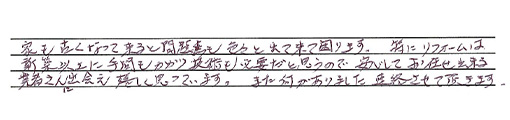 家も古くなって来ると問題点も色々と出て来て困ります。 特にリフォームは
新築以上に手間もかかり技術も必要だと思うので 安心してお任せ出来る
業者さんに出会え嬉しく思っています。 また何かありました 連絡させて頂きます